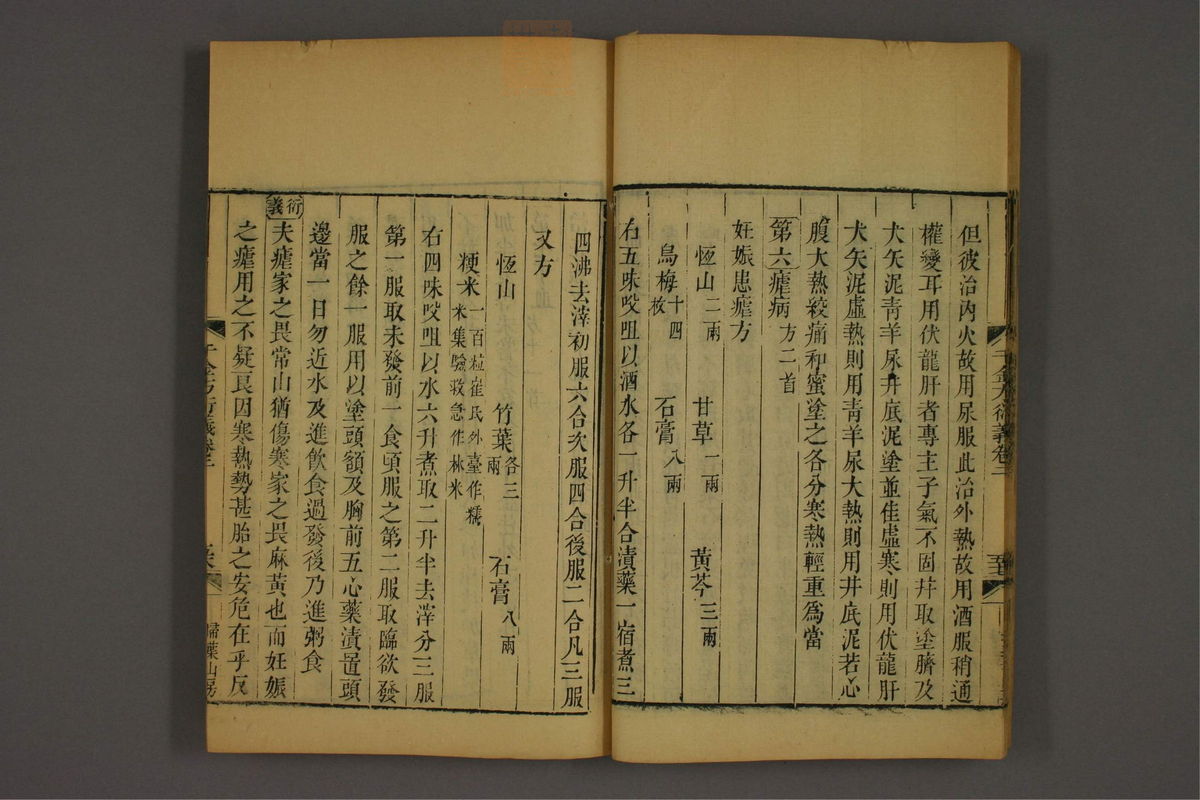 但彼治內火故用尿服此治外熱故用酒服稍通
權變耳用伏龍肝者專主子氣不固井取塗臍及
犬矢泥青羊尿井底泥塗並佳虛寒則用伏龍肝
犬矢泥虛熱則用青羊尿大熱則用井底泥若心
腹大熱絞痛和蜜塗之各分寒熱輕重爲當
第六瘧病方二首
妊娠患瘧方
恆山二兩 甘草一兩 黃芩三兩
烏梅十四枚 石膏八兩
右五味㕮咀以酒水各一升半合漬藥一宿煮三
四沸去滓初服六合次服四合後服二合凡三服
又方
恆山 竹葉各三兩 石膏八兩
粳米一百粒崔氏外臺作糯米集驗救急作秫米
右四味㕮咀以水六升煮取二升半去滓分三服
第一服取未發前一食頃服之第二服取臨欲發
服之餘一服用以塗頭額及胸前五心藥漬置頭
邊當一日勿近水及進飲食過發後乃進粥食
衍義
夫瘧家之畏常山猶傷寒家之畏麻黃也而妊娠
之瘧用之不疑良因寒熱勢甚胎之安危在乎反
千金方衍義卷二
千金方衍義卷二
掃葉山房